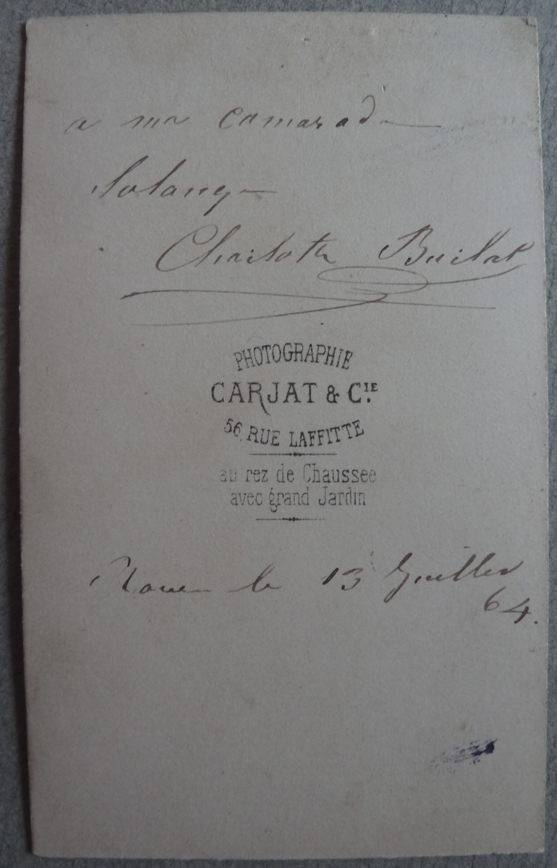 a ma camarade
Solange
Charlotte
PHOTOGRAPHIE
CARJAT & CIE.
56, RUE LAFFITTE
au rez de Chaussee
avec grand Jardin
Rouen le 13 Juillet
64.